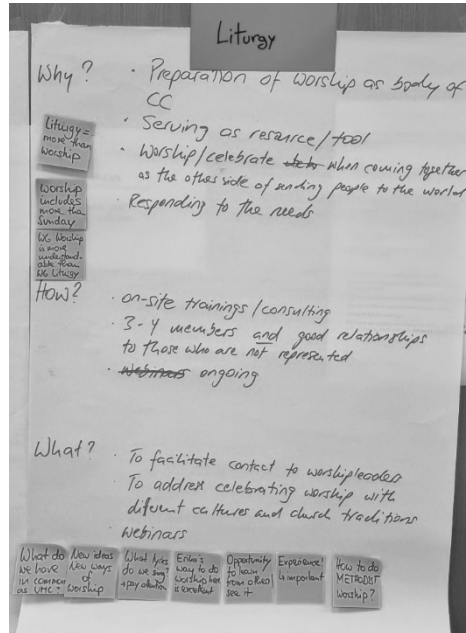 Liturgy
Why?
· Preparation of worship as body of
CC
· Serving as resource/tool
· Worship/celebrate when coming together
as the other side of sending people to the world
· Responding to the needs
Liturgy =
more than
worship
Worship
includes
more than
Sunday
WG Worship
is more
understand-
able than
WG Liturgy
How?
· on-site trainings/consulting
· 3-4 members and good relationships
to those who are not represented
· webinars ongoing
What?
· To facilitate contact to worshipleaders
· To address celebrating worship with
diferent cultures and church traditions
· webinars
What do
we have
in common
as UMC?
New ideas
New ways
of
worship
What lyrics
do we sing
→pay attention
way to do
worship here
is excellent
Opportunity
to learn
from others
see it
Experience!
is important
How to do
METHODIST
worship?